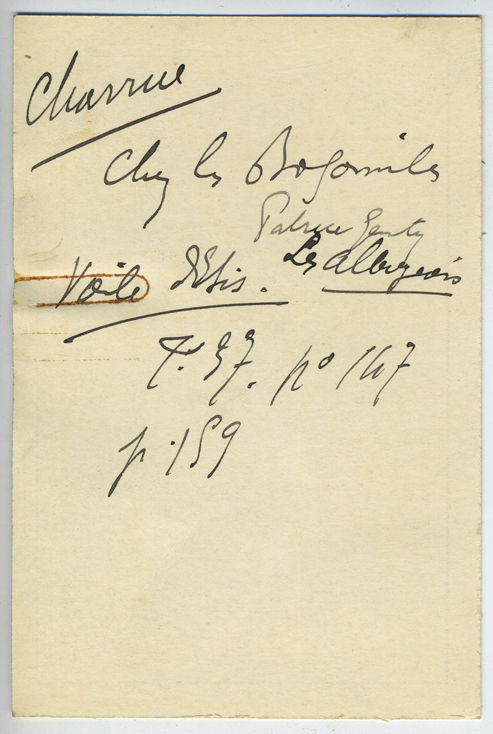 Charrue
Chez les Bogomiles
Patrice Genty
Les Albigeois
Voile d'Isis.
T. 37. no 147
p. 159